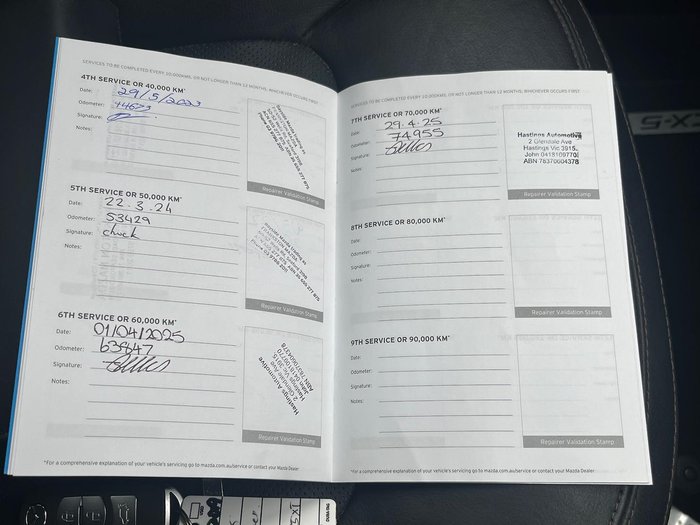 SERVICES TO BE COMPLETED EVERY 10,000KMS, OR NOT LONGER THAN 12 MONTHS, WHICHEVER OCCURS FIRST
4TH SERVICE OR 40,000 KM*
Date: 29/5/2023
Odometer: 44673
Signature:
Notes:
Repairer Validation Stamp
5TH SERVICE OR 50,000 KM*
Date: 22.3.24
Odometer: 53429
Signature: chuck
Notes:
Repairer Validation Stamp
6TH SERVICE OR 60,000 KM*
Date: 01/04/2025
Odometer: 63847
Signature:
Notes:
Hastings Automotive
2 Glendale Ave
Hastings Vic 3915,
John 0418109770
ABN 78370004378
Repairer Validation Stamp
*For a comprehensive explanation of your vehicle's servicing go to mazda.com.au/service or contact your Mazda Dealer
SERVICES TO BE COMPLETED EVERY 10,000KMS, OR NOT LONGER THAN 12 MONTHS, WHICHEVER OCCURS FIRST
7TH SERVICE OR 70,000 KM*
Date: 29.4.25
Odometer: 74955
Signature:
Notes:
Hastings Automotive
2 Glendale Ave
Hastings Vic 3915,
John 0418109770
ABN 78370004378
Repairer Validation Stamp
8TH SERVICE OR 80,000 KM*
Date:
Odometer:
Signature:
Notes:
Repairer Validation Stamp
9TH SERVICE OR 90,000 KM*
Date:
Odometer:
Signature:
Notes:
Repairer Validation Stamp
*For a comprehensive explanation of your vehicle's servicing go to mazda.com.au/service or contact your Mazda Dealer
CX-5